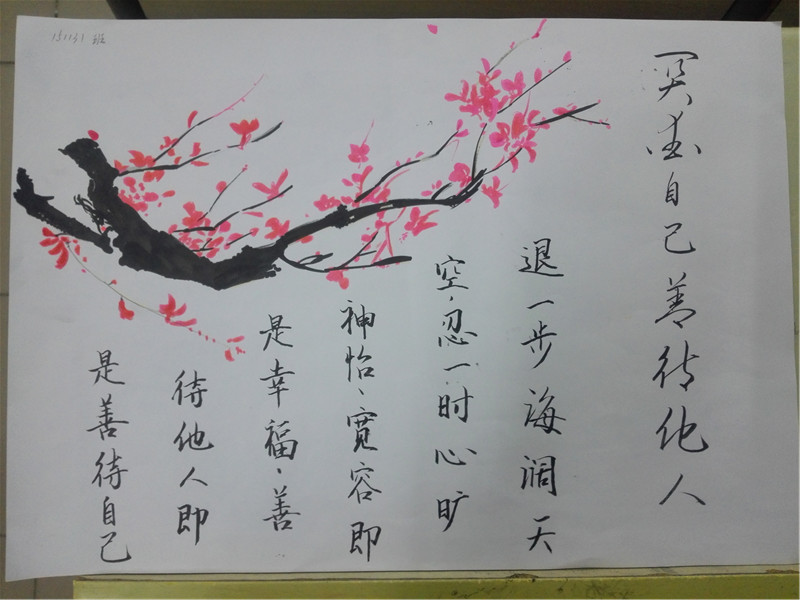 关爱自己善待他人
退一步海阔天
空、忍一时心旷
神怡、宽容即
是幸福、善
待他人即
是善待自己
151131 班